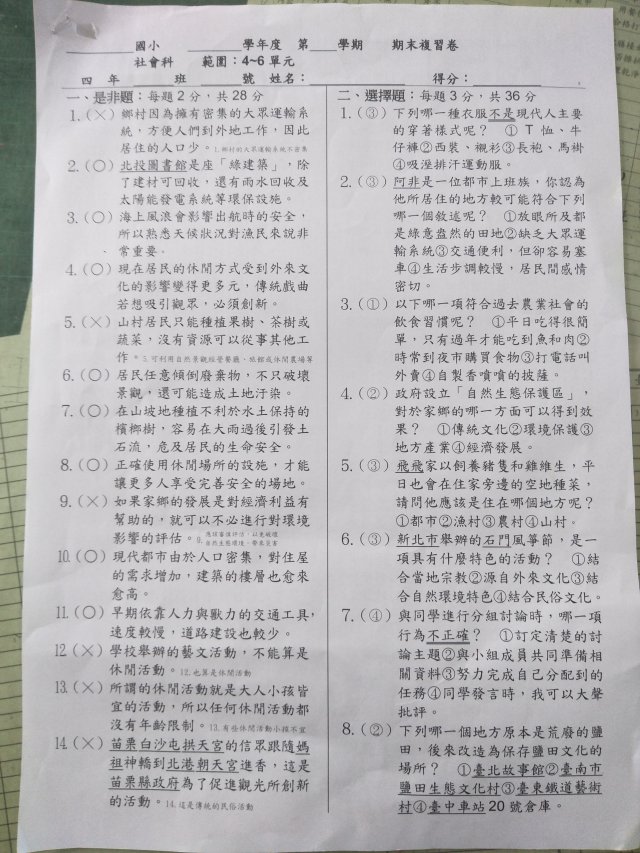 ______國小 ______學年度 第___學期 期末複習卷
社會科 範圍：4~6單元
四年______班 號 姓名：______ 得分：______
一、是非題：每題2分，共28分
1.（×）鄉村因為擁有密集的大眾運輸系
統，方便人們到外地工作，因此
居住的人口少。1.鄉村的大眾運輸系統不密集
2.（○）北投圖書館是座「綠建築」，除
了建材可回收，還有雨水回收及
太陽能發電系統等環保設施。
3.（○）海上風浪會影響出航時的安全，
所以熟悉天候狀況對漁民來說非
常重要。
4.（○）現在居民的休閒方式受到外來文
化的影響變得更多元，傳統戲曲
若想吸引觀眾，必須創新。
5.（×）山村居民只能種植果樹、茶樹或
蔬菜，沒有資源可以從事其他工
作。5.可利用自然景觀經營餐廳、旅館或休閒農場等
6.（○）居民任意傾倒廢棄物，不只破壞
景觀，還可能造成土地汙染。
7.（○）在山坡地種植不利於水土保持的
檳榔樹，容易在大雨過後引發土
石流，危及居民的生命安全。
8.（○）正確使用休閒場所的設施，才能
讓更多人享受完善安全的場地。
9.（×）如果家鄉的發展是對經濟利益有
幫助的，就可以不必進行對環境
影響的評估。9.應該審慎評估，以免破壞
自然生態環境，帶來災害
10.（○）現代都市由於人口密集，對住屋
的需求增加，建築的樓層也愈來
愈高。
11.（○）早期依靠人力與獸力的交通工具，
速度較慢，道路建設也較少。
12.（×）學校舉辦的藝文活動，不能算是
休閒活動。12.也算是休閒活動
13.（×）所謂的休閒活動就是大人小孩皆
宜的活動，所以任何休閒活動都
沒有年齡限制。13.有些休閒活動小孩不宜
14.（×）苗栗白沙屯拱天宮的信眾跟隨媽
祖神轎到北港朝天宮進香，這是
苗栗縣政府為了促進觀光所創新
的活動。14.這是傳統的民俗活動
二、選擇題：每題3分，共36分
1.（③）下列哪一種衣服不是現代人主要
的穿著樣式呢？ ①T恤、牛
仔褲②西裝、襯衫③長袍、馬褂
④吸溼排汗運動服。
2.（③）阿非是一位都市上班族，你認為
他所居住的地方較可能符合下列
哪一個敘述呢？ ①放眼所及都
是綠意盎然的田地②缺乏大眾運
輸系統③交通便利，但卻容易塞
車④生活步調較慢，居民間感情
密切。
3.（①）以下哪一項符合過去農業社會的
飲食習慣呢？ ①平日吃得很簡
單，只有過年才能吃到魚和肉②
時常到夜市購買食物③打電話叫
外賣④自製香噴噴的披薩。
4.（②）政府設立「自然生態保護區」，
對於家鄉的哪一方面可以得到效
果？ ①傳統文化②環境保護③
地方產業④經濟發展。
5.（③）飛飛家以飼養豬隻和雞維生，平
日也會在住家旁邊的空地種菜，
請問他應該是住在哪個地方呢？
①都市②漁村③農村④山村。
6.（③）新北市舉辦的石門風箏節，是一
項具有什麼特色的活動？ ①結
合當地宗教②源自外來文化③結
合自然環境特色④結合民俗文化。
7.（④）與同學進行分組討論時，哪一項
行為不正確？ ①訂定清楚的討
論主題②與小組成員共同準備相
關資料③努力完成自己分配到的
任務④同學發言時，我可以大聲
批評。
8.（②）下列哪一個地方原本是荒廢的鹽
田，後來改造為保存鹽田文化的
場所？ ①臺北故事館②臺南市
鹽田生態文化村③臺東鐵道藝術
村④臺中車站20號倉庫。